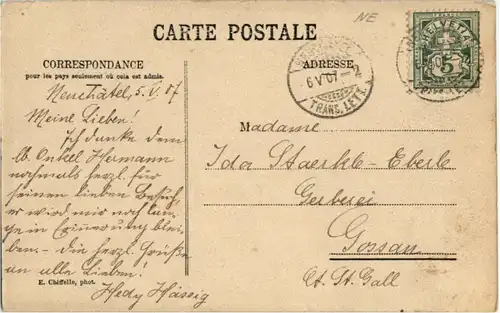 NE
CARTE POSTALE
CORRESPONDANCE
pour les pays seulement où cela est admis.
ADRESSE
6 V 07
TRANS. LETT.
HELVETIA
5
Neuchâtel, 5. V. 07
Meine Lieben!
Ich danke dem
lb. Onkel Hermann
nochmals herzl. für
seinen lieben Besuch,
er wird mir noch lan-
ge in Erinnerung blei-
ben. - Die herzl. Grüße
an alle Lieben!
Hedy Häseig
E. Chiffelle, phot.
Madame
Ida Staerkle-Eberle
Gerberei
Gossau
Ct. St. Gall